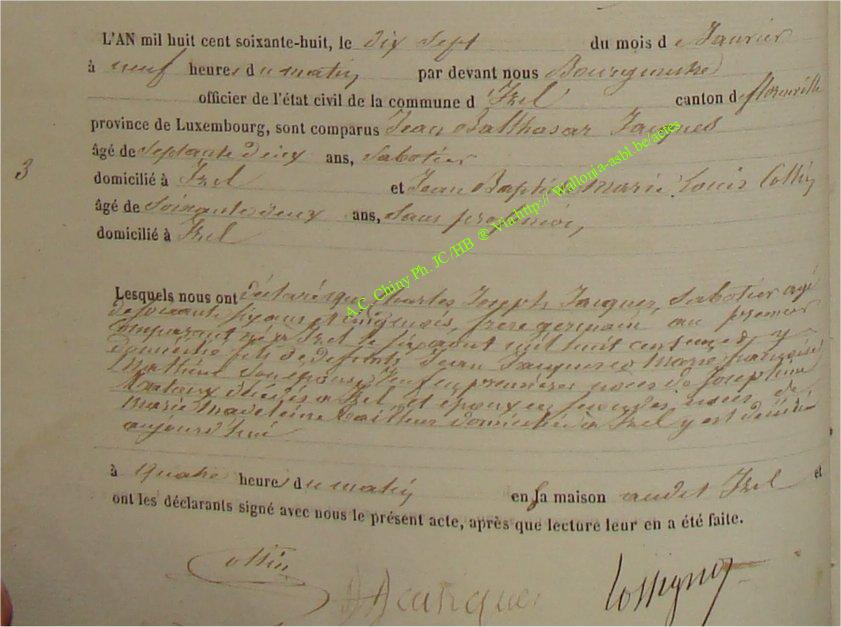 L'AN mil huit cent soixante-huit, le dix sept du mois d e Janvier
à neuf heures du matin par devant nous Bourgmestre
officier de l'état civil de la commune d 'Izel canton de florenville
province de Luxembourg, sont comparus Jean Balthasar Jacques
âgé de Septante deux ans, Sabotier
3
domicilié à Izel et Jean Baptiste Marie Louis Collin
âgé de Soixante deux ans, Sans profession,
domicilié à Izel
A.C. Chiny Ph. JC /HB ® Via http:// Wallonia-asbl.be/actes
Lesquels nous ont déclaré que Charles Joseph Jacques, Sabotier agé
de soixante ans et cinq mois, frère germain au premier
comparant né à Izel le six aout mil huit cent y
domicilié fils de defunts Jean Jacques et Marie françoise
Mathieu son épouse, Veuf en premières noces de Josephine
décédée à Izel et époux en secondes noces de
Marie Madeleine domiciliée à Izel y est décédé
aujourd'hui
à quatre heures du matin en sa maison audit Izel et
ont les déclarants signé avec nous le présent acte, après que lecture leur en a été faite.
Collin
Jacques